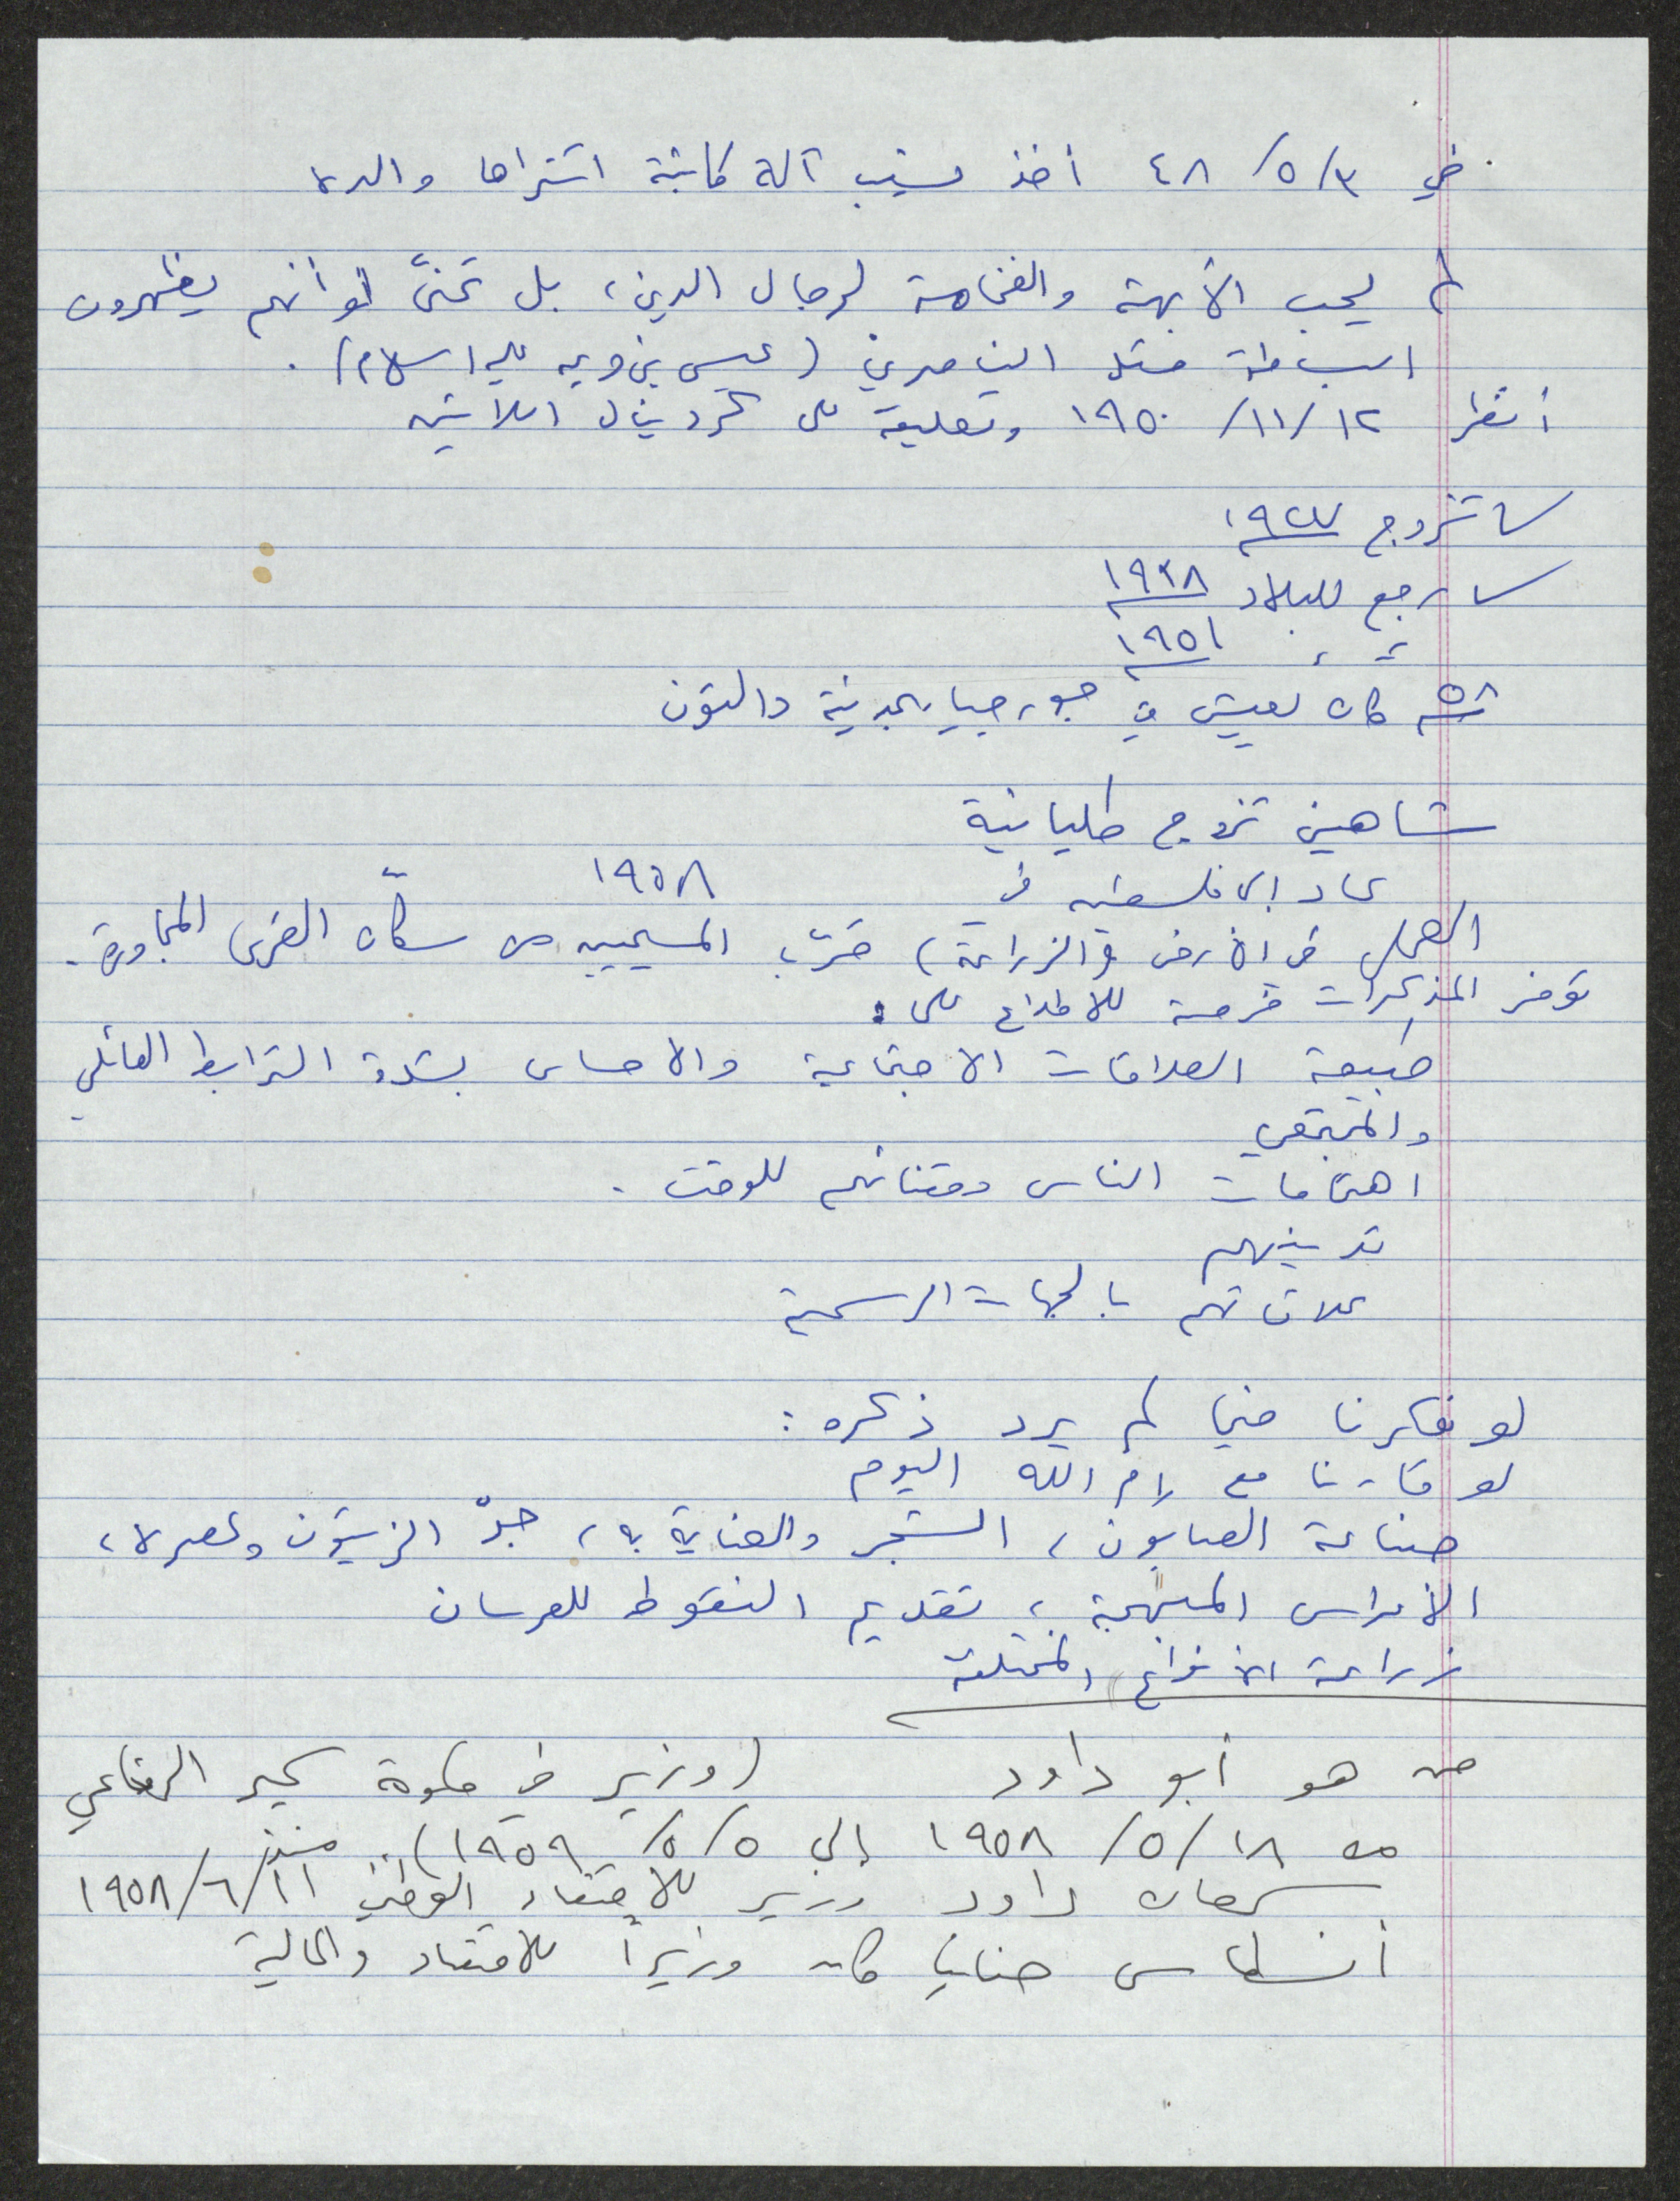 في ٣/٥/٤٨ أخذ نسيب آلة كاتبة اشتراها والده
لم يحب الأبهة والفخامة لرجال الدين، بل تمنّى لو أنهم يظهرون
البساطة مثل الناصري (عيسى بن مريم عليه السلام).
أنظر ١٢/١١/١٩٥٠ وتعليقه على كردينال اللاتين
تزوج ١٩٢٧
رجع للبلاد ١٩٣٨
١٩٥١
٥٨ كان يعيش في جورجيا بمدينة دالتون
شاهين تزوج طليانية
عاد إلى فلسطين في ١٩٥٨
العمل في الأرض (الزراعة) قرّب المسيحيين من سكّان القرى المجاورة.
توفر المذكرات فرصة للاطلاع على:
طبيعة العلاقات الاجتماعية والاحساس بشدة الترابط العائلي
والمجتمعي
اهتمامات الناس وقتنائهم للوقت.
تدينهم
علاقاتهم بالجهات الرسمية
لو فكرنا فيما لم يرد ذكره:
لو قارنا مع رام الله اليوم
صناعة الصابون، الشجر والعناية به، جدّ الزيتون وعصره،
الأعراس المبهجة، تقديم النقوط للعرسان
زراعة الأنواع المختلفة
من هو أبو داود (وزير في حكومة سمير الرفاعي
من ١٨/٥/١٩٥٨ إلى ٥/٥/١٩٥٩). منذ
سمعان داود وزير للاقتصاد الوطني ١١/٦/١٩٥٨
أنسطاس حنانيا كان وزيراً للاقتصاد والمالية